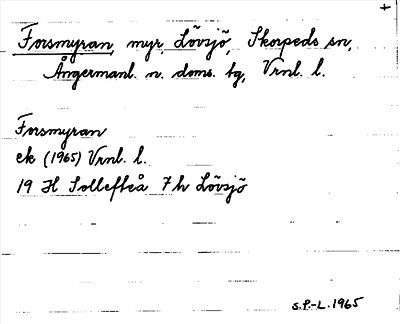 +
Forsmyran, myr, Lövsjö, Skorpeds sn,
Ångermanl. n. doms. tg, Vrnl. l.
Forsmyran
ek (1965) Vrnl. l.
19 H Sollefteå 7 h Lövsjö
S.P.-L. 1965